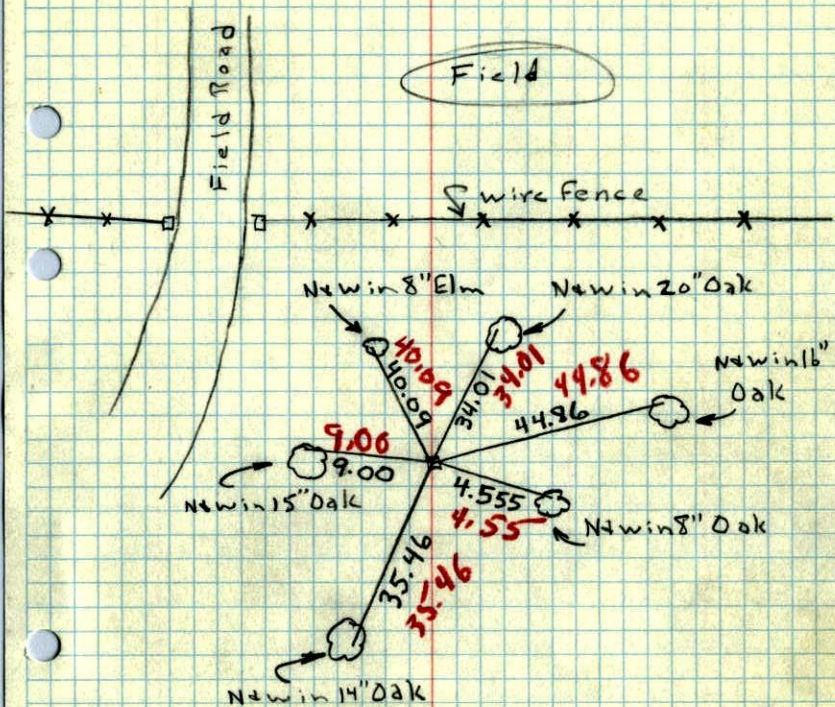 Field Road
Field
wire Fence
N&W in 8" Elm
N&W in 20" Oak
N&W in 16"
Oak
40.09
40.09
34.01
34.01
44.86
44.86
9.00
9.00
N&W in 15" Oak
4.555
4.55
N&W in 8" Oak
35.46
35.46
N&W in 14" Oak